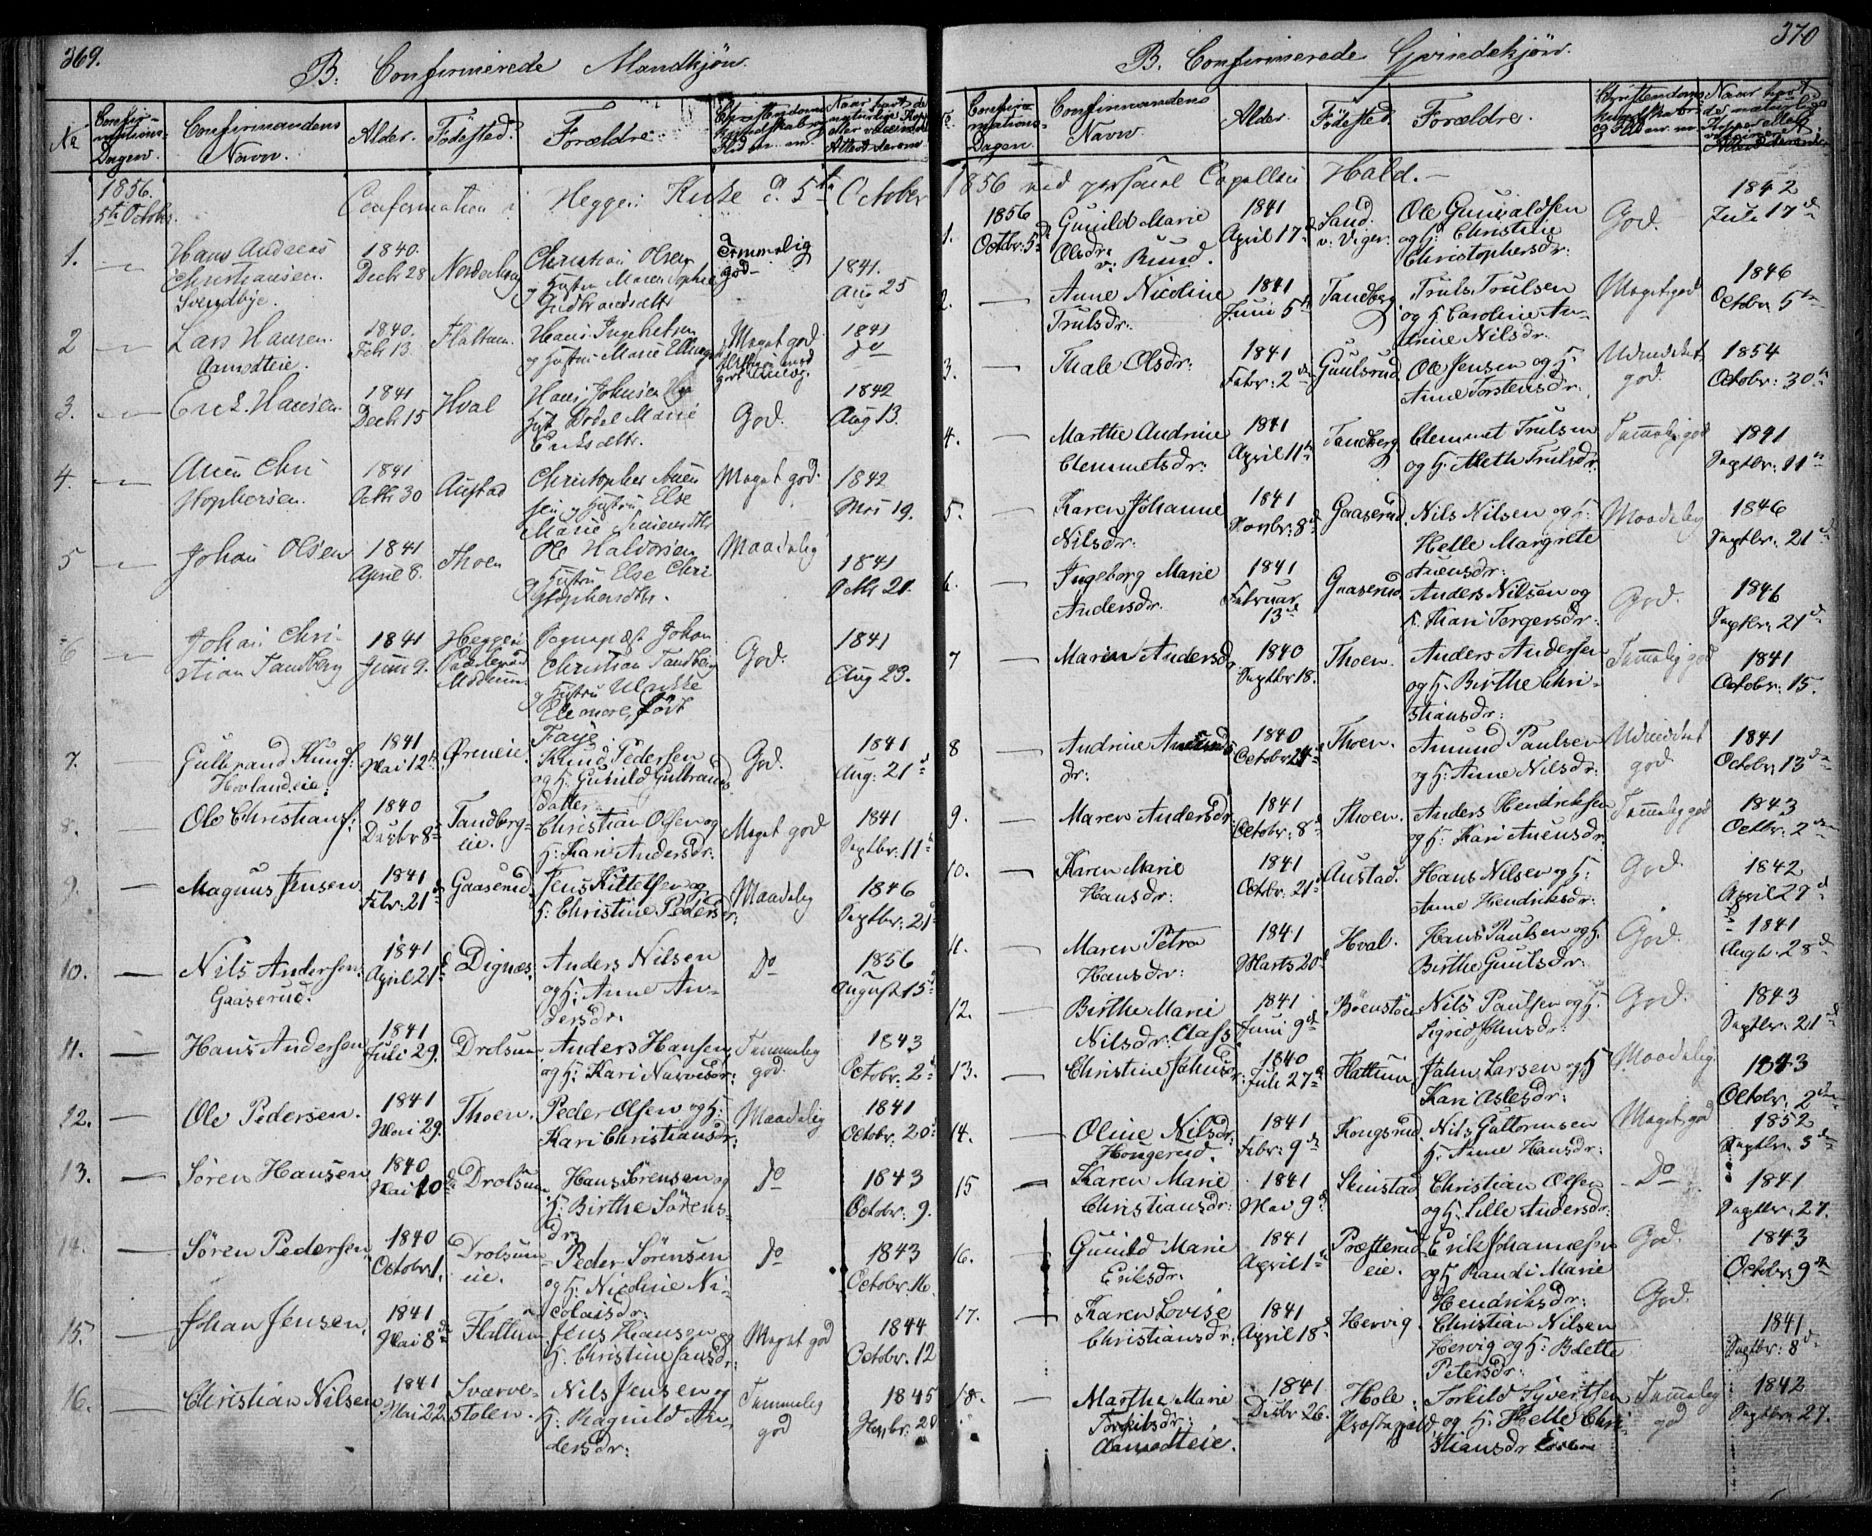 369.
B. Confirmerede Mandkjøn.
No
Confir-
mations-
Dagen.
Confirmandens
Navn.
Alder.
Fødested.
Forældre.
Christendoms
Kundskab og
Flid
Naar havt de
naturlige Kopper
eller vaccineret
Attest derom
1856.
5te Octobr.
Confirmation i Heggen Kirke d. 5te October
1.
Hans Andreas
Christiansen.
Svendbye.
1840.
Decbr 28
Norderhoug
Christian Olsen
og Hustru Maren Sophie
Gudbrandsdatter
Temmelig
god
1841.
Aug 25
2
Lars Hansen.
Aamodteie.
1840.
Febr 13
Flattum.
Hans Ingebretsen
og Hustru Marie
Meget god.
1841
do
3.
Erik Hansen.
1841
Decbr 15
Hval
Hans Johnsen
Hust. Bodel Marie
Eriksdtr.
God.
1842
Aug 13.
4.
Auen Chri
stophersen.
1841
Octbr 30
Austad
Christopher Auen
sen og Hustru Else
Marie
Meget god.
1842
Mai 19.
5
Johan Olsen
1841
April 8.
Thoen
Ole Halvorsen
og Hustru Else Chri
stophersdtr.
Maadelig
1841
Octbr 21.
6
Johan Chri-
stian Tandberg
1841
Juni 9.
Heggen
Præstegaard
Modum
Sognepræst Johan
Christian Tandberg
og Hustru Ulrikke
Eleonore, født
Faye.
God.
1841
Aug 23.
7.
Gulbrand Knuds.
Hovlandeie.
1841
Mai 12te
Øreneie.
Knud Pedersen
og H. Gunild Gulbrands
datter
God.
1841
Aug: 21de
8.
Ole Christians.
1840
Decbr 8de
Tandberg-
eie.
Christian Olsen og
H: Kari Andersdr:
Meget god
1841
Septbr. 11te
9.
Magnus Jensen
1841
Febr: 21de
Gaaserud.
Jens Kittelsen og
H: Christine Pedersdr:
Maadelig
1846
Septbr: 21de
10.
Nils Andersen
Gaaserud.
1841
April 21de
Dignæs.
Anders Nilsen
og H: Anne An-
dersdr.
Do
1856
August 15de
11.
Hans Andersen
1841
Juli 29.
Drolsum.
Anders Hansen
og H: Kari Narvesdr:
Temmelig
god.
1843
Octobr. 2de
12.
Ole Pedersen.
1841
Mai 29.
Thoen.
Peder Olsen og H:
Kari Christiansdr:
Maadelig
1841
Octobr. 20de
13.
Søren Hansen
1840
Mai 10de
Drolsum
Hans Sørensen og
H: Birthe Sørens-
dr:
Do
1843
Octobr: 9.
14.
Søren Pedersen.
1840
Octobr 1.
Drolsum
eie.
Peder Sørensen
og H: Nicoline Ni-
colaisdr:
Do
1843
Octobr. 16.
15.
Johan Jensen.
1841
Mai 8de
Flattum
Jens Hansen og
H: Christine Jansdr:
Meget god
1844
Octobr. 12
16.
Christian Nilsen
1841
Mai 22.
Sværve-
stolen.
Nils Jensen og
H: Ragnild An-
dersdr:
Temmelig
god
1845
Novbr: 20
370
B. Confirmerede Qvindekjøn.
Confir-
mations-
Dagen
Confirmandens
Navn
Alder.
Fødested.
Forældre.
Christendoms
Kundskab
og Flid
Naar havt
de naturlige
Kopper eller
vaccineret
Attest derom
1856 ved personel Capellan Hald.—
1.
1856
Octbr: 5te
Gunild Marie
Olsdr.
v. Rund.
1841
April 17de
Sand.
v. Viger
Ole Gunvaldsen
og H: Christine
Christophersdr.
God.
1842
Juli 17de
2.
Anne Nicoline
Trulsdr.
1841
Juni 5te
Tandberg
Truls Trulsen
og H Caroline An-
drine Nilsdr.
Meget god
1846
October 5te
3.
Thale Olsdr.
1841
Febr: 2de
Guulsrud
Ole Jensen og H:
Anne Torstensdr.
Udmerket
god.
1854
Octobr: 30te
4.
Marthe Andrine
Clemmetsdr:
1841
April 11te
Tandberg
Clemmet Trulsen
og H. Methe Trulsdr.
Temmelig god
1841
Septbr: 11te
5.
Karen Johanne
Nilsdr:
1841
Novbr: 8de
Gaaserud.
Nils Nilsen og H:
Helle Margrete
Auensdr:
Maadelig
1846
Septbr: 21de
6.
Ingeborg Marie
Andersdr.
1841
Februar
13de
Gaaserud
Anders Nilsen og
H. Kari Torgersdr:
God.
1846
Septbr: 21de
7
Maren Andersdr
1840
Septbr 18.
Thoen.
Anders Andersen
og H: Birthe Chri-
stiansdr:
Temmelig god
1841
Octobr: 15.
8
Andrine Amunds
dr:
1840
October 24de
Thoen.
Amund Paulsen
og H: Anne Nilsdr:
Udmerket
god.
1841
Octobr 13de
9.
Maren Andersdr:
1841
Octobr: 8de
Thoen.
Anders Hendriksen
og H: Kari Auensdr:
Temmelig god
1843
Octbr: 2den
10.
Karen Marie
Hansdr:
1841
Octbr: 21de
Austad.
Hans Nilsen og H:
Anne Hendriksdr:
God
1842
April 27de
11.
Maren Petra
Hansdr:
1841
Marts 20de
Hval.
Hans Paulsen og H.
Birthe Guulsdr:
God.
1841
Augt. 28de
12.
Birthe Marie
Nilsdr: Aass
1841
Juni 9de
Bøenstøen
Nils Paulsen og H.
Sigrid Johnsdr:
God.
1843
Septbr: 21de
13.
Christine Jahnsdr:
1840
Juli 27de
Flattum
Jahn Larsen og H
Kari Aslesdr:
Maadelig
1843
Octobr. 2den
14.
Oline Nilsdr:
Hougerud.
1841
Febr: 9de
Kongsrud.
Nils Guttormsen
H. Anne Hansdr:
Meget god
1852
Septbr. 5de
15
Karen Marie
Christiansdr:
1841
Mai 9de
Skinstad
Christian Olsen
og H. Lille Andersdr:
Do
1841
Septbr. 27.
16.
Gunild Marie
Eriksdr.
1841
April 1ste
Præsterud-
eie.
Erik Johannesen
og H Randi Marie
Hendriksdr:
God.
1843
October 9de
17.
Karen Lovise
Christiansdr:
1841
April 18de
Hervig.
Christian Nilsen
Hervig og H: Bolette
Petersdr:
God.
1841
Septbr: 8de
18.
Marthe Marie
Torkildsdr:
Aamodteie.
1841
Decbr 26.
Hole
Præstegjeld,
Torkild Syvertsen
og H: Helle Chri-
stiansdr
Temmelig
god
1842
Septbr: 27.